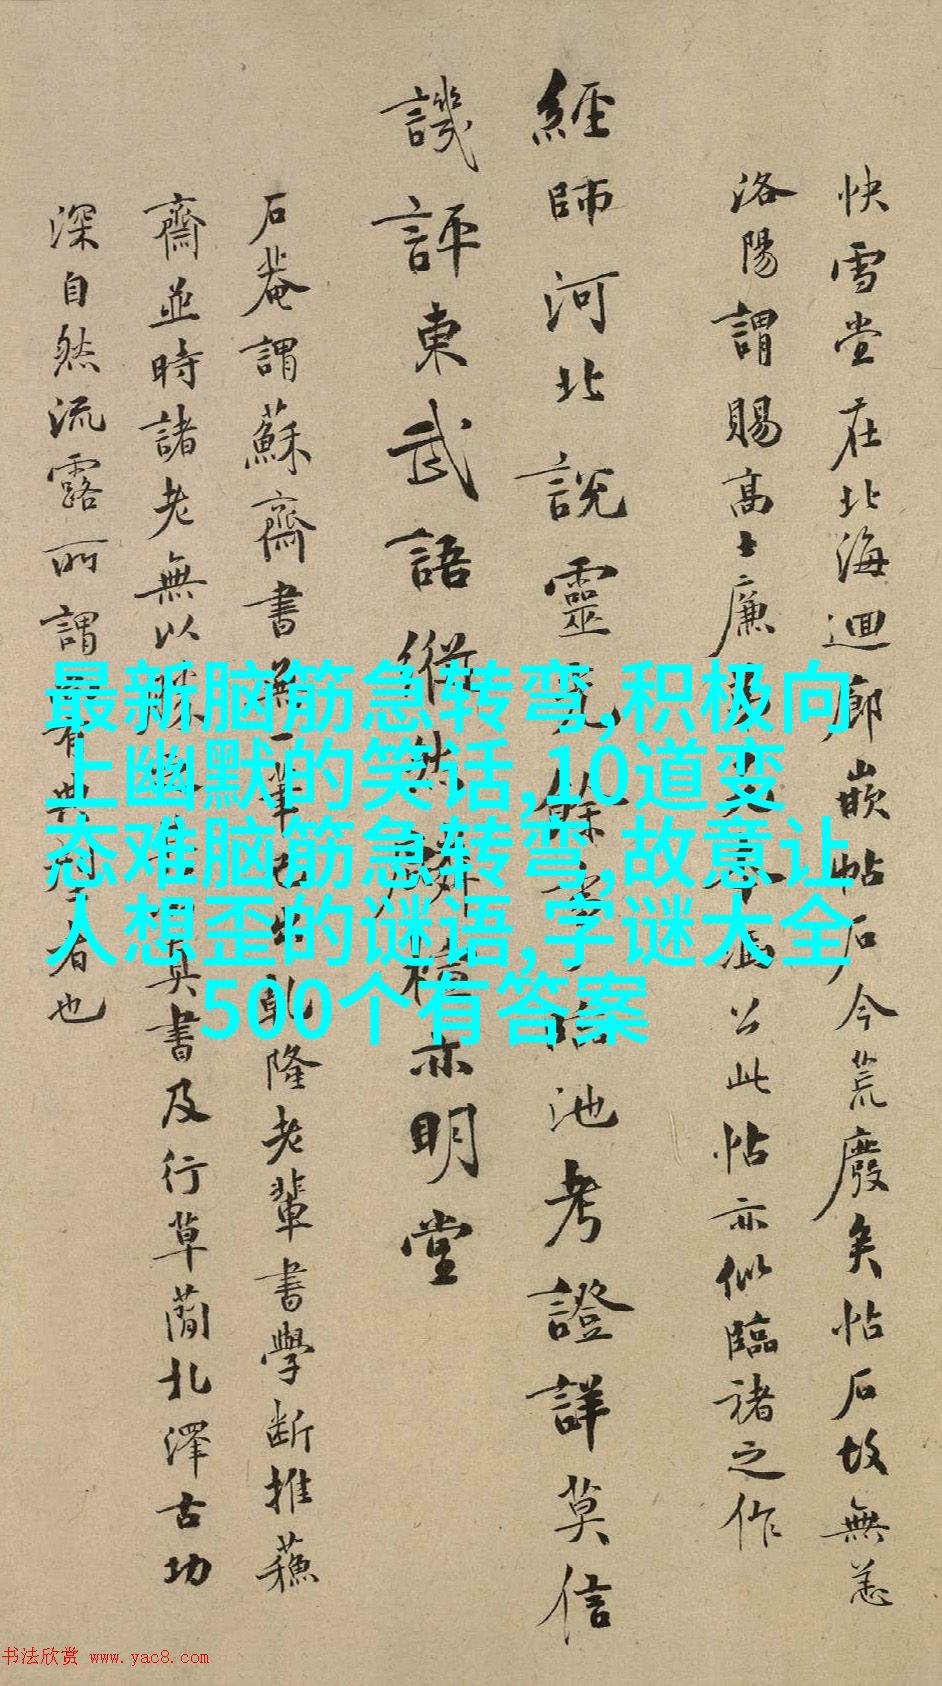 快雪堂在北海迴廊嵌帖石今荒廢矣帖石故無恙
洛陽謂賜高士廉公此帖亦似臨褚之作
經師河北說靈餘臨池考證詳莫信
譏評東武語縱然亦明堂
石菴謂蘇齋書無一筆己出乾隆老輩書學斷推蘓
齋並時諸老無以勝其書及行草簡札澤古功
深自然流露所謂有典者也
最新脑筋急转弯,积极向
上幽默的笑话,10道变
态难脑筋急转弯,故意让
人想歪的谜语,字谜大全
500个有答案
书法欣赏 www.yac8.com